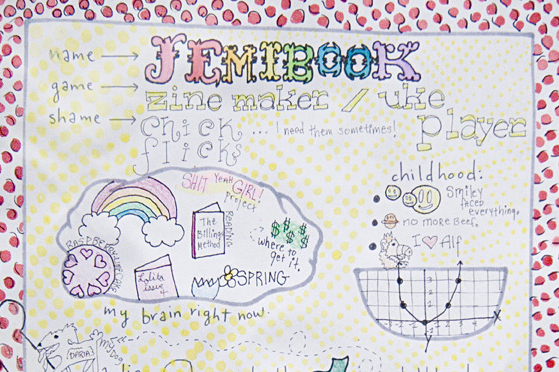 name → FEMIBOOK
game → zine maker / uke player
shame → chick flicks ... I need them sometimes!
SHIT YEAH GIRL!
project
The Billings Method
READING
$$$
where to get it.
Lolita issue
SPRING
my brain right now.
childhood:
Smiley faced everything.
no more Beef.
I ♡ Alf
X
Y
DARIA
my Dog